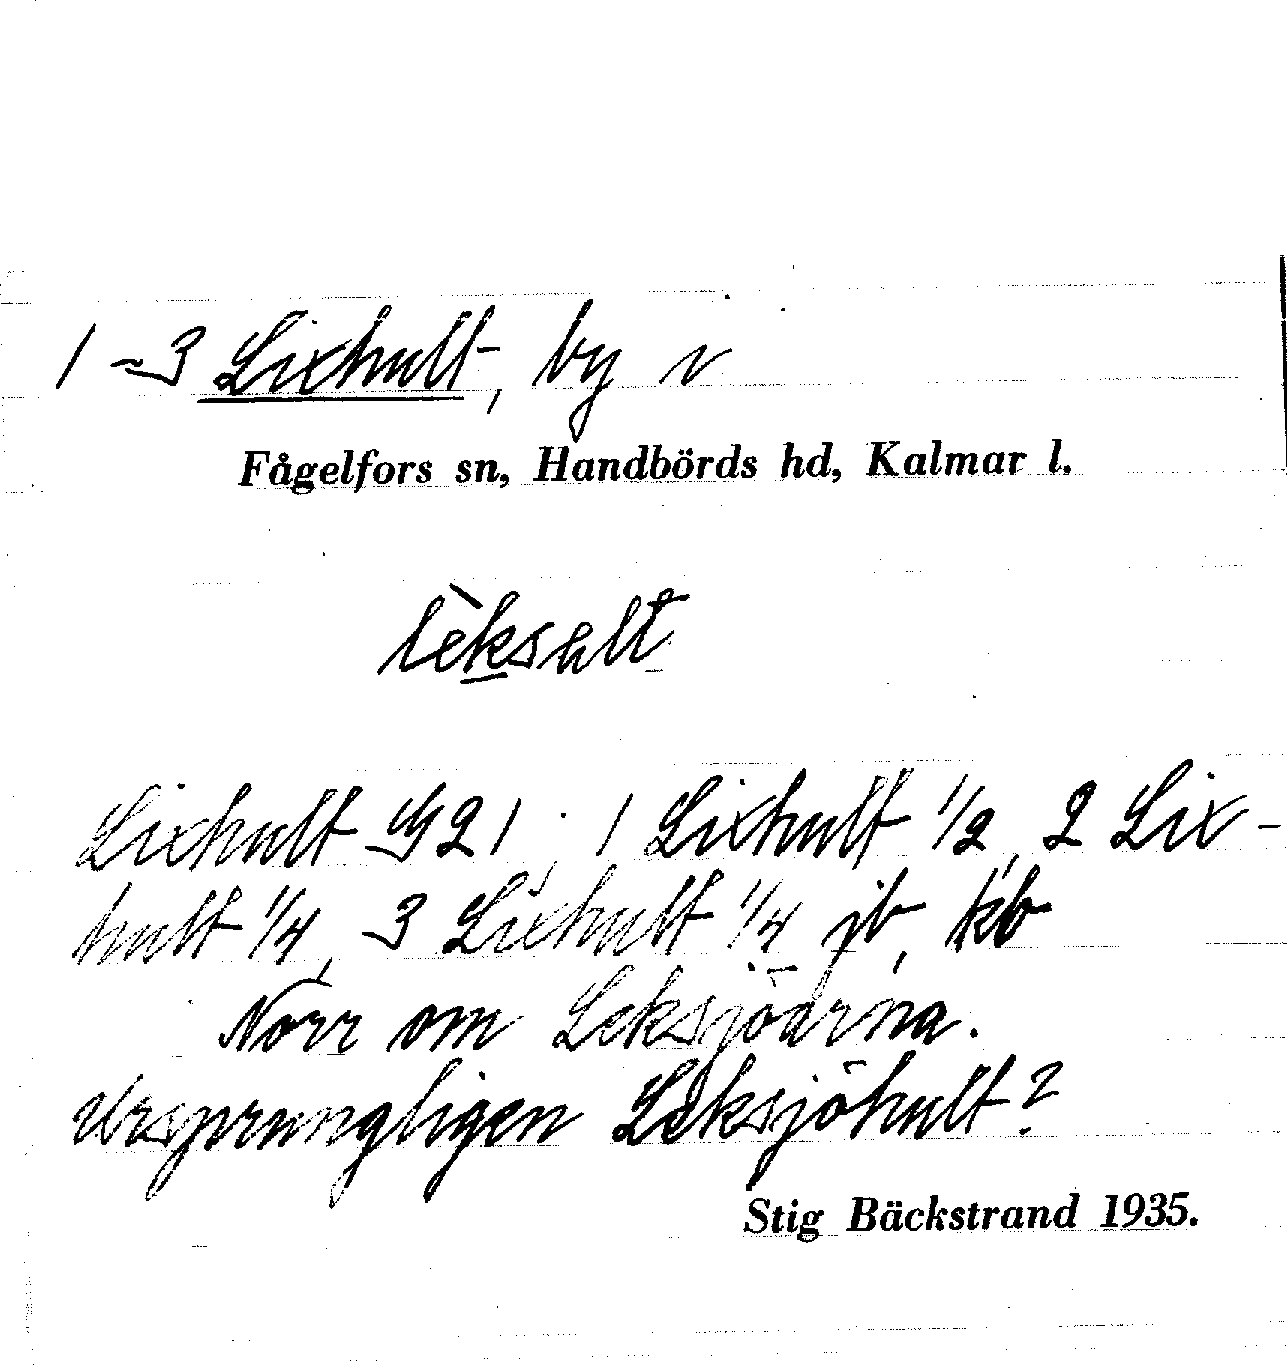 1–3 Lixhult, by v
Fågelfors sn, Handbörds hd, Kalmar l.
lèksult
Lixhult 1, 1 Lixhult 1/2, 2 Lix-
hult 1/4, 3 Lixhult 1/4 jb, kb
Norr om Leksjöarna.
Ursprungligen Leksjöhult?
Stig Bäckstrand 1935.